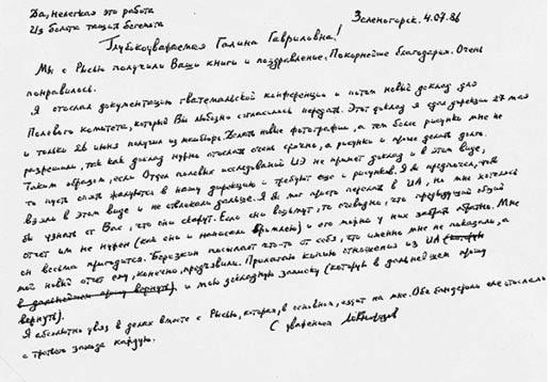 Да, нелегкая это работа
Из болота тащить бегемота
Зеленогорск. 4.07.86
Глубокоуважаемая Галина Гавриловна!
Мы с Рысью получили Ваши книги и поздравление. Покорнейше благодарю. Очень
понравилось.
Я отослал документацию гватемальской конференции и потом новый доклад для
Полевого комитета, который Вы любезно согласились передать. Этот доклад я сдал дирекции 27 мая
и только 26 июня получил из машбюро. Делать новые фотографии, а тем более рисунки мне не
разрешили, так как доклад нужно отослать очень срочно, а рисунки и проще делать долго.
Таким образом, если Отдел полевых исследований ИЭ не примет доклад и в этом виде,
то пусть опять жалуются в нашу дирекцию и требуют еще и рисунков. Я бы предпочел, чтобы
взяли в этом виде и не отвлекали дальше. Я бы мог просто переслать в ИА, но мне хотелось
бы узнать от Вас, что они скажут. Если они возьмут, то очевидно, что предыдущий общий
отчет им не нужен (как они и написали Кримлею) и его можно у них забрать обратно. Мне
он весьма пригодится. Березкин посылает что-то от себя, что именно мне не показали, а
мой новый отчет ему, конечно, предъявили. Прилагаю копию отношения из ИА (которую
в дальнейшем прошу вернуть) и мою докладную записку (которую в дальнейшем прошу
вернуть).
Я абсолютно увяз в делах вместе с Рысью, которая, в основном, ездит на мне. Обе бандероли еле отослали
с третьего захода каждую.
С уважением